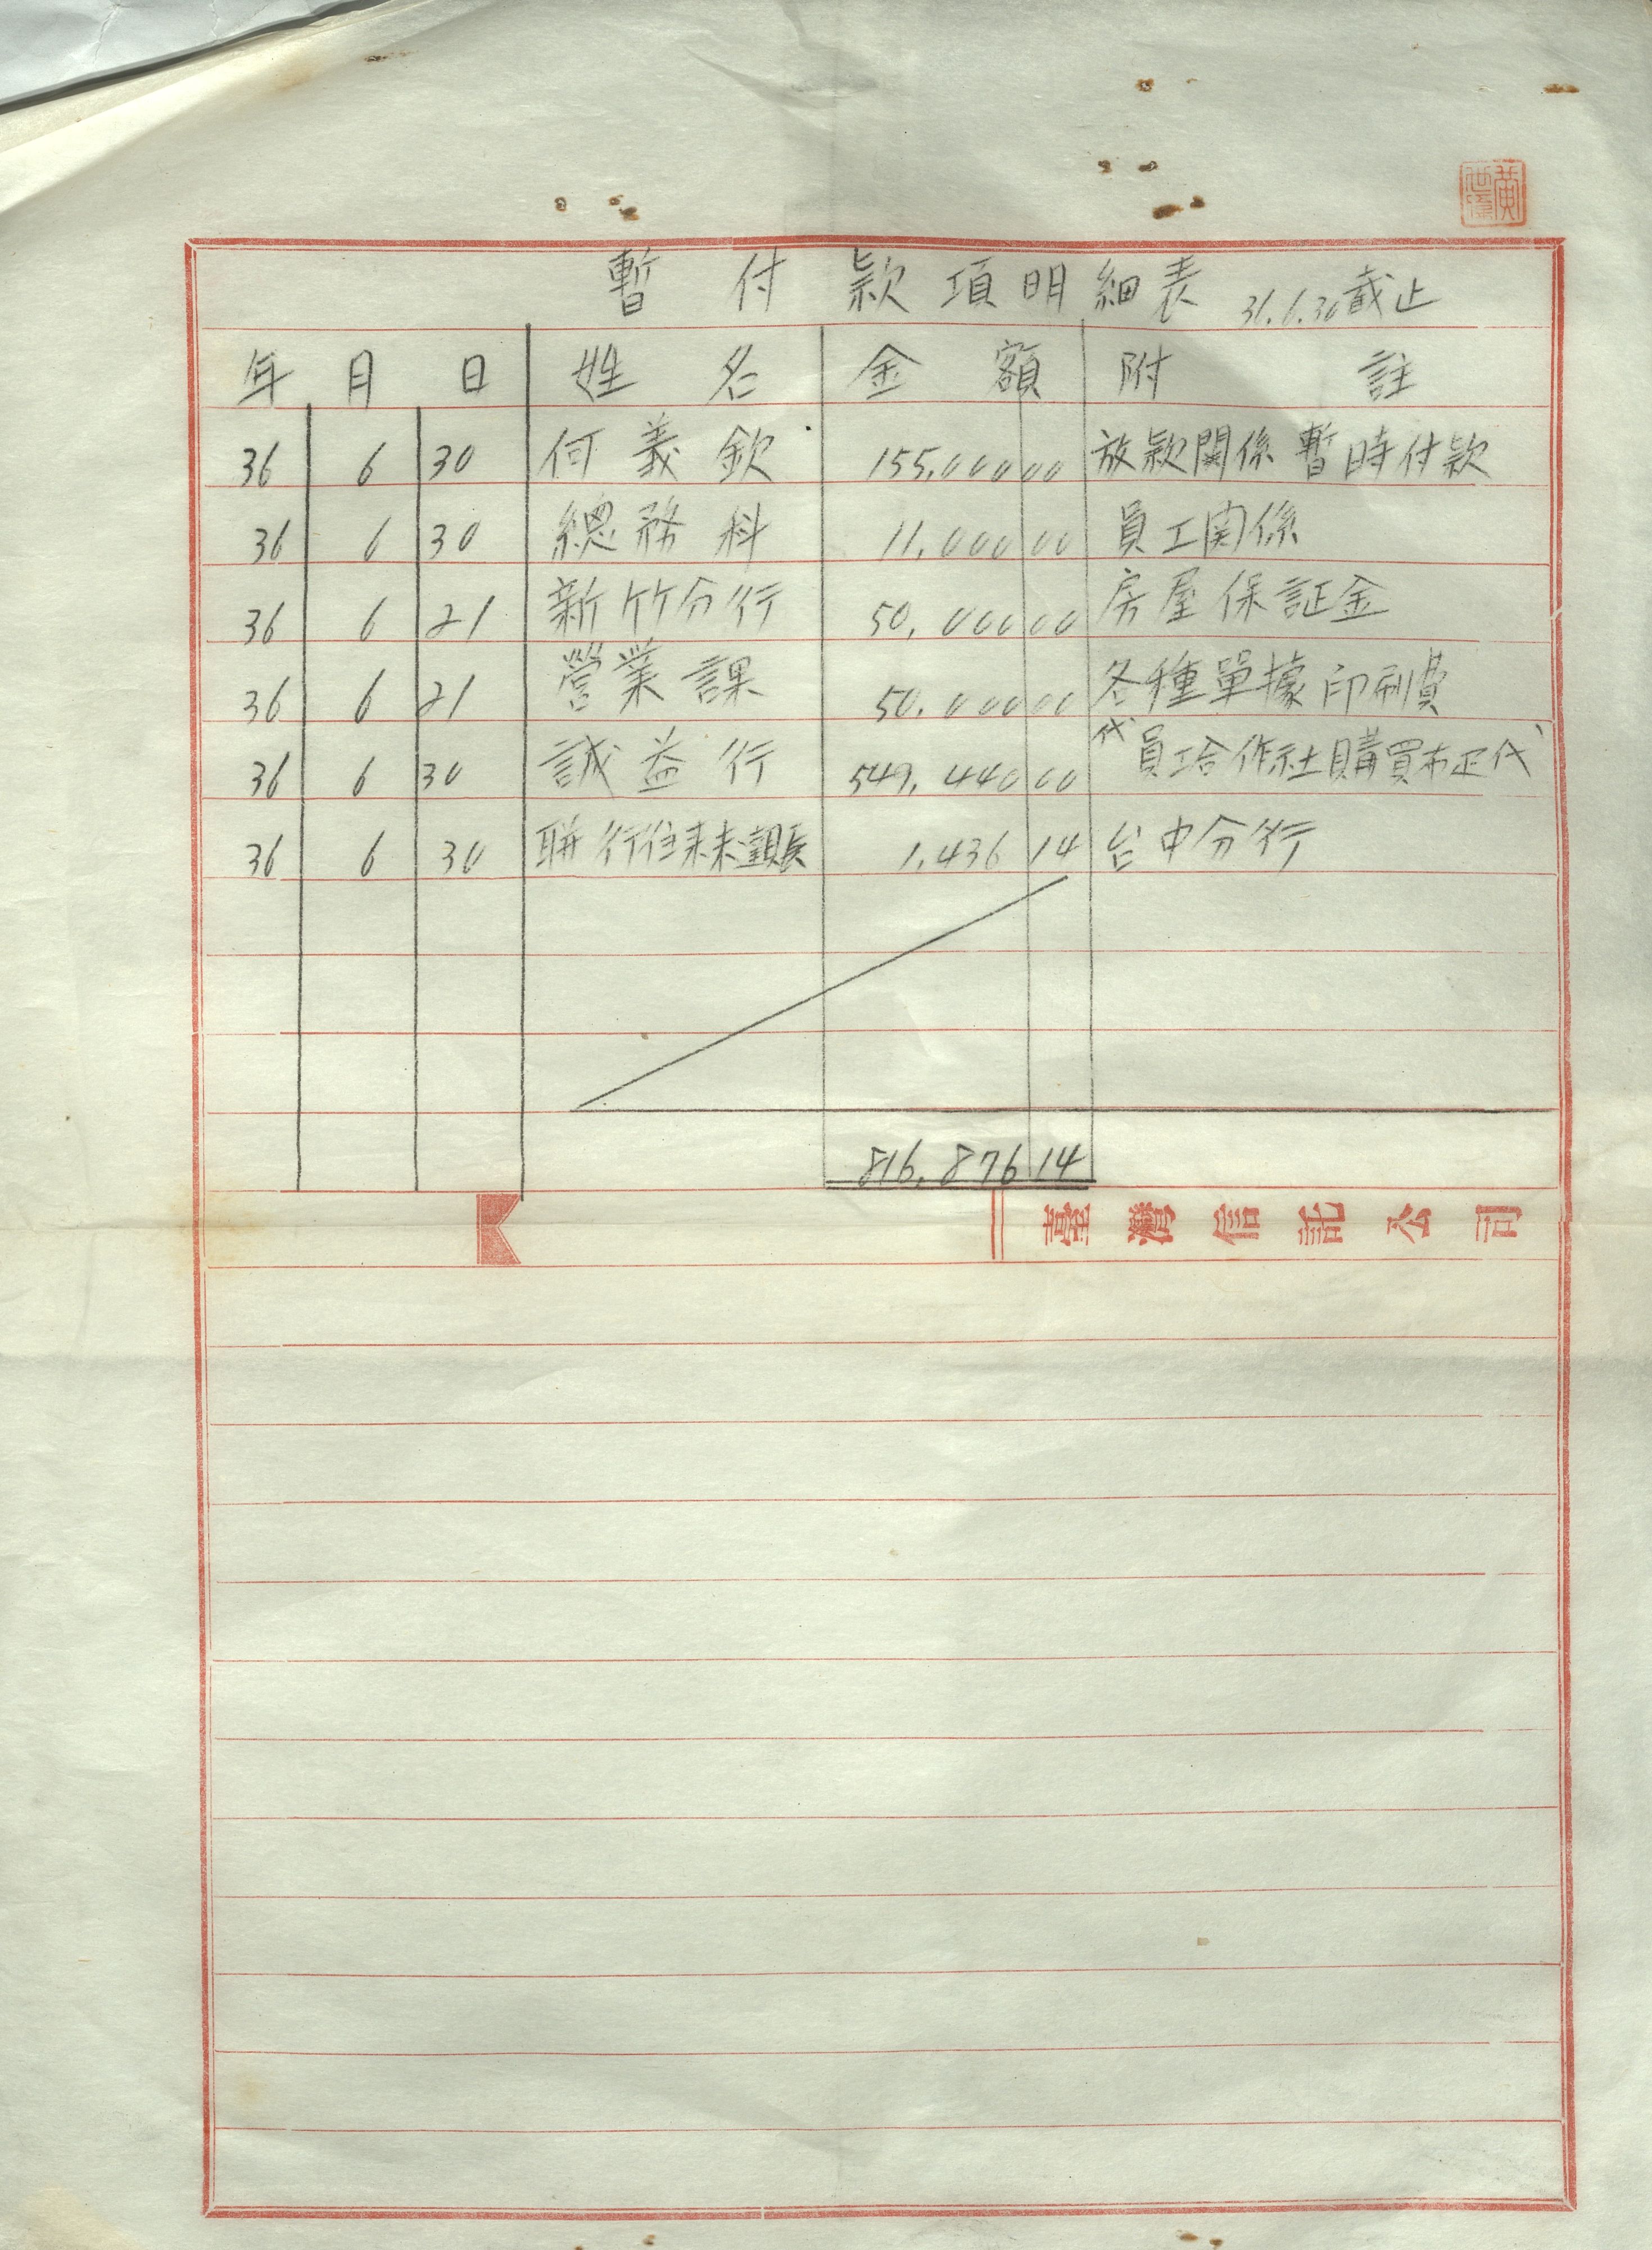 暫付款項明細表 36.6.30截止
年 月 日 姓名 金額 附註
36 6 30 何義欽 155,000 00 放款関係暫時付款
36 6 30 總務科 11,000 00 員工関係
36 6 21 新竹分行 50,000 00 房屋保証金
36 6 21 營業課 50,000 00 各種單據印刷費
36 6 30 誠益行 549,440 00 代員工合作社購買布疋代
36 6 30 聯行往来未達賬 1,436 14 台中分行
816,876 14
臺灣信託公司